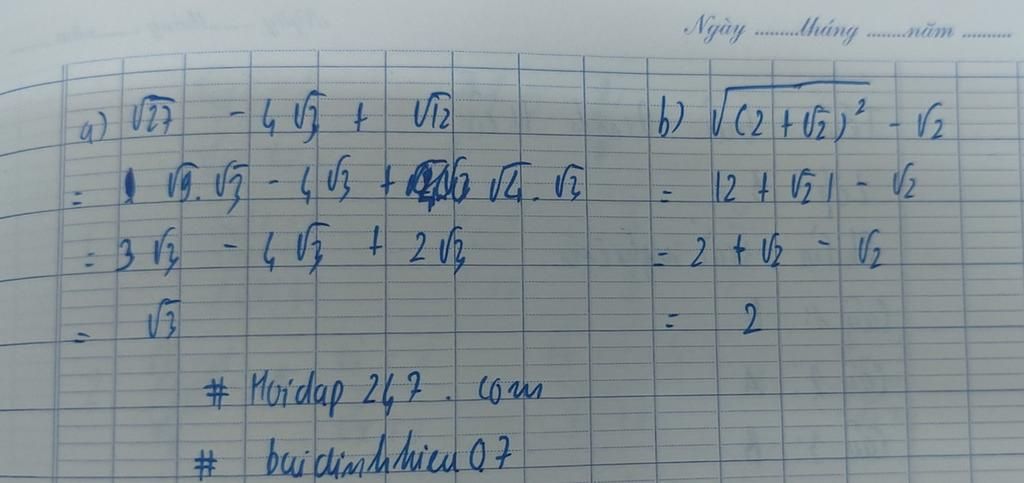 Ngày ..........tháng ........năm ..........
a) √27 - 4√3 + √12
= √9.√3 - 4√3 + √4.√3
= 3√3 - 4√3 + 2√3
= √3
b) √(2 + √2)² - √2
= |2 + √2| - √2
= 2 + √2 - √2
= 2
# Hoidap 247 . com
# buidinhhieu 07